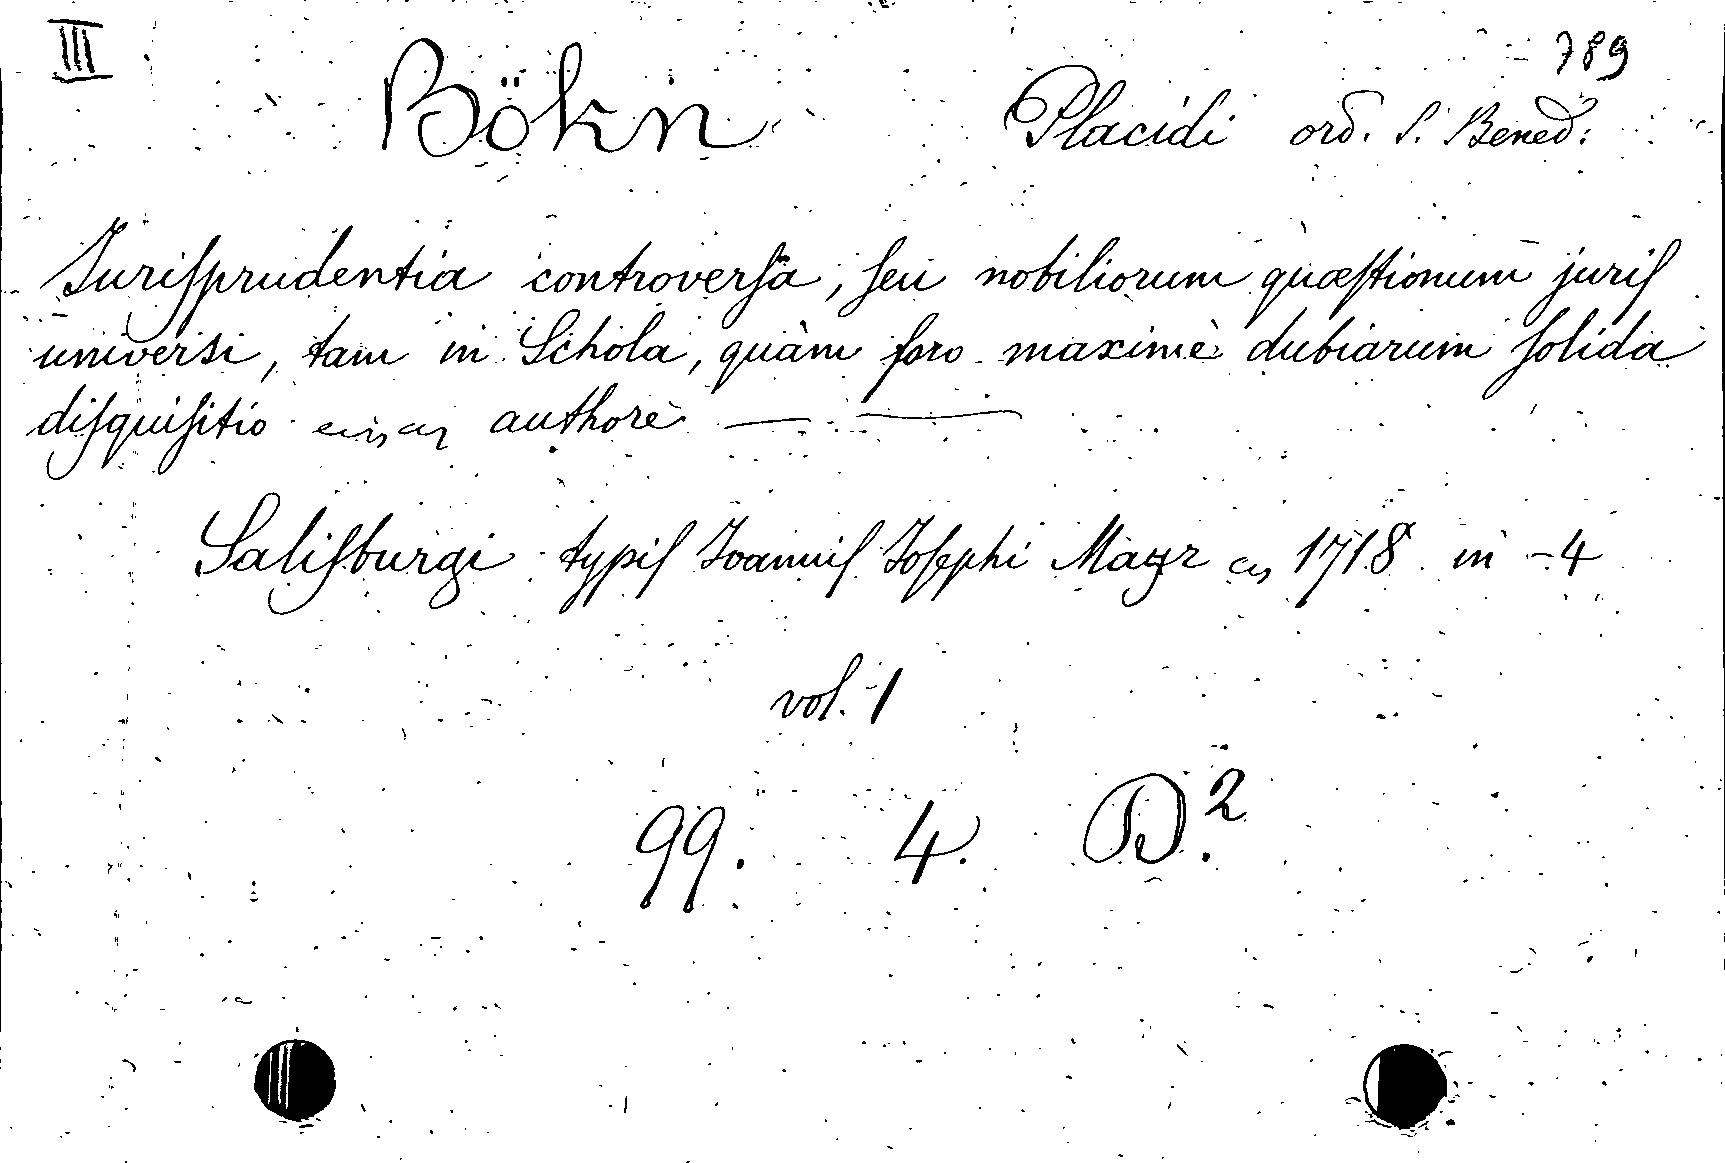 III 789
Bökn Placidi ord. S. Bened:
Juriſprudentia controverſa, ſeu nobiliorum quæſtionum juriſ
universi, tam in Schola, quàm foro maximè dubiarum ſolida
diſquiſitio authore — —
Saliſburgi typiſ Joanniſ Joſephi Mayr 1718 in - 4
vol. 1
99. 4. D.²